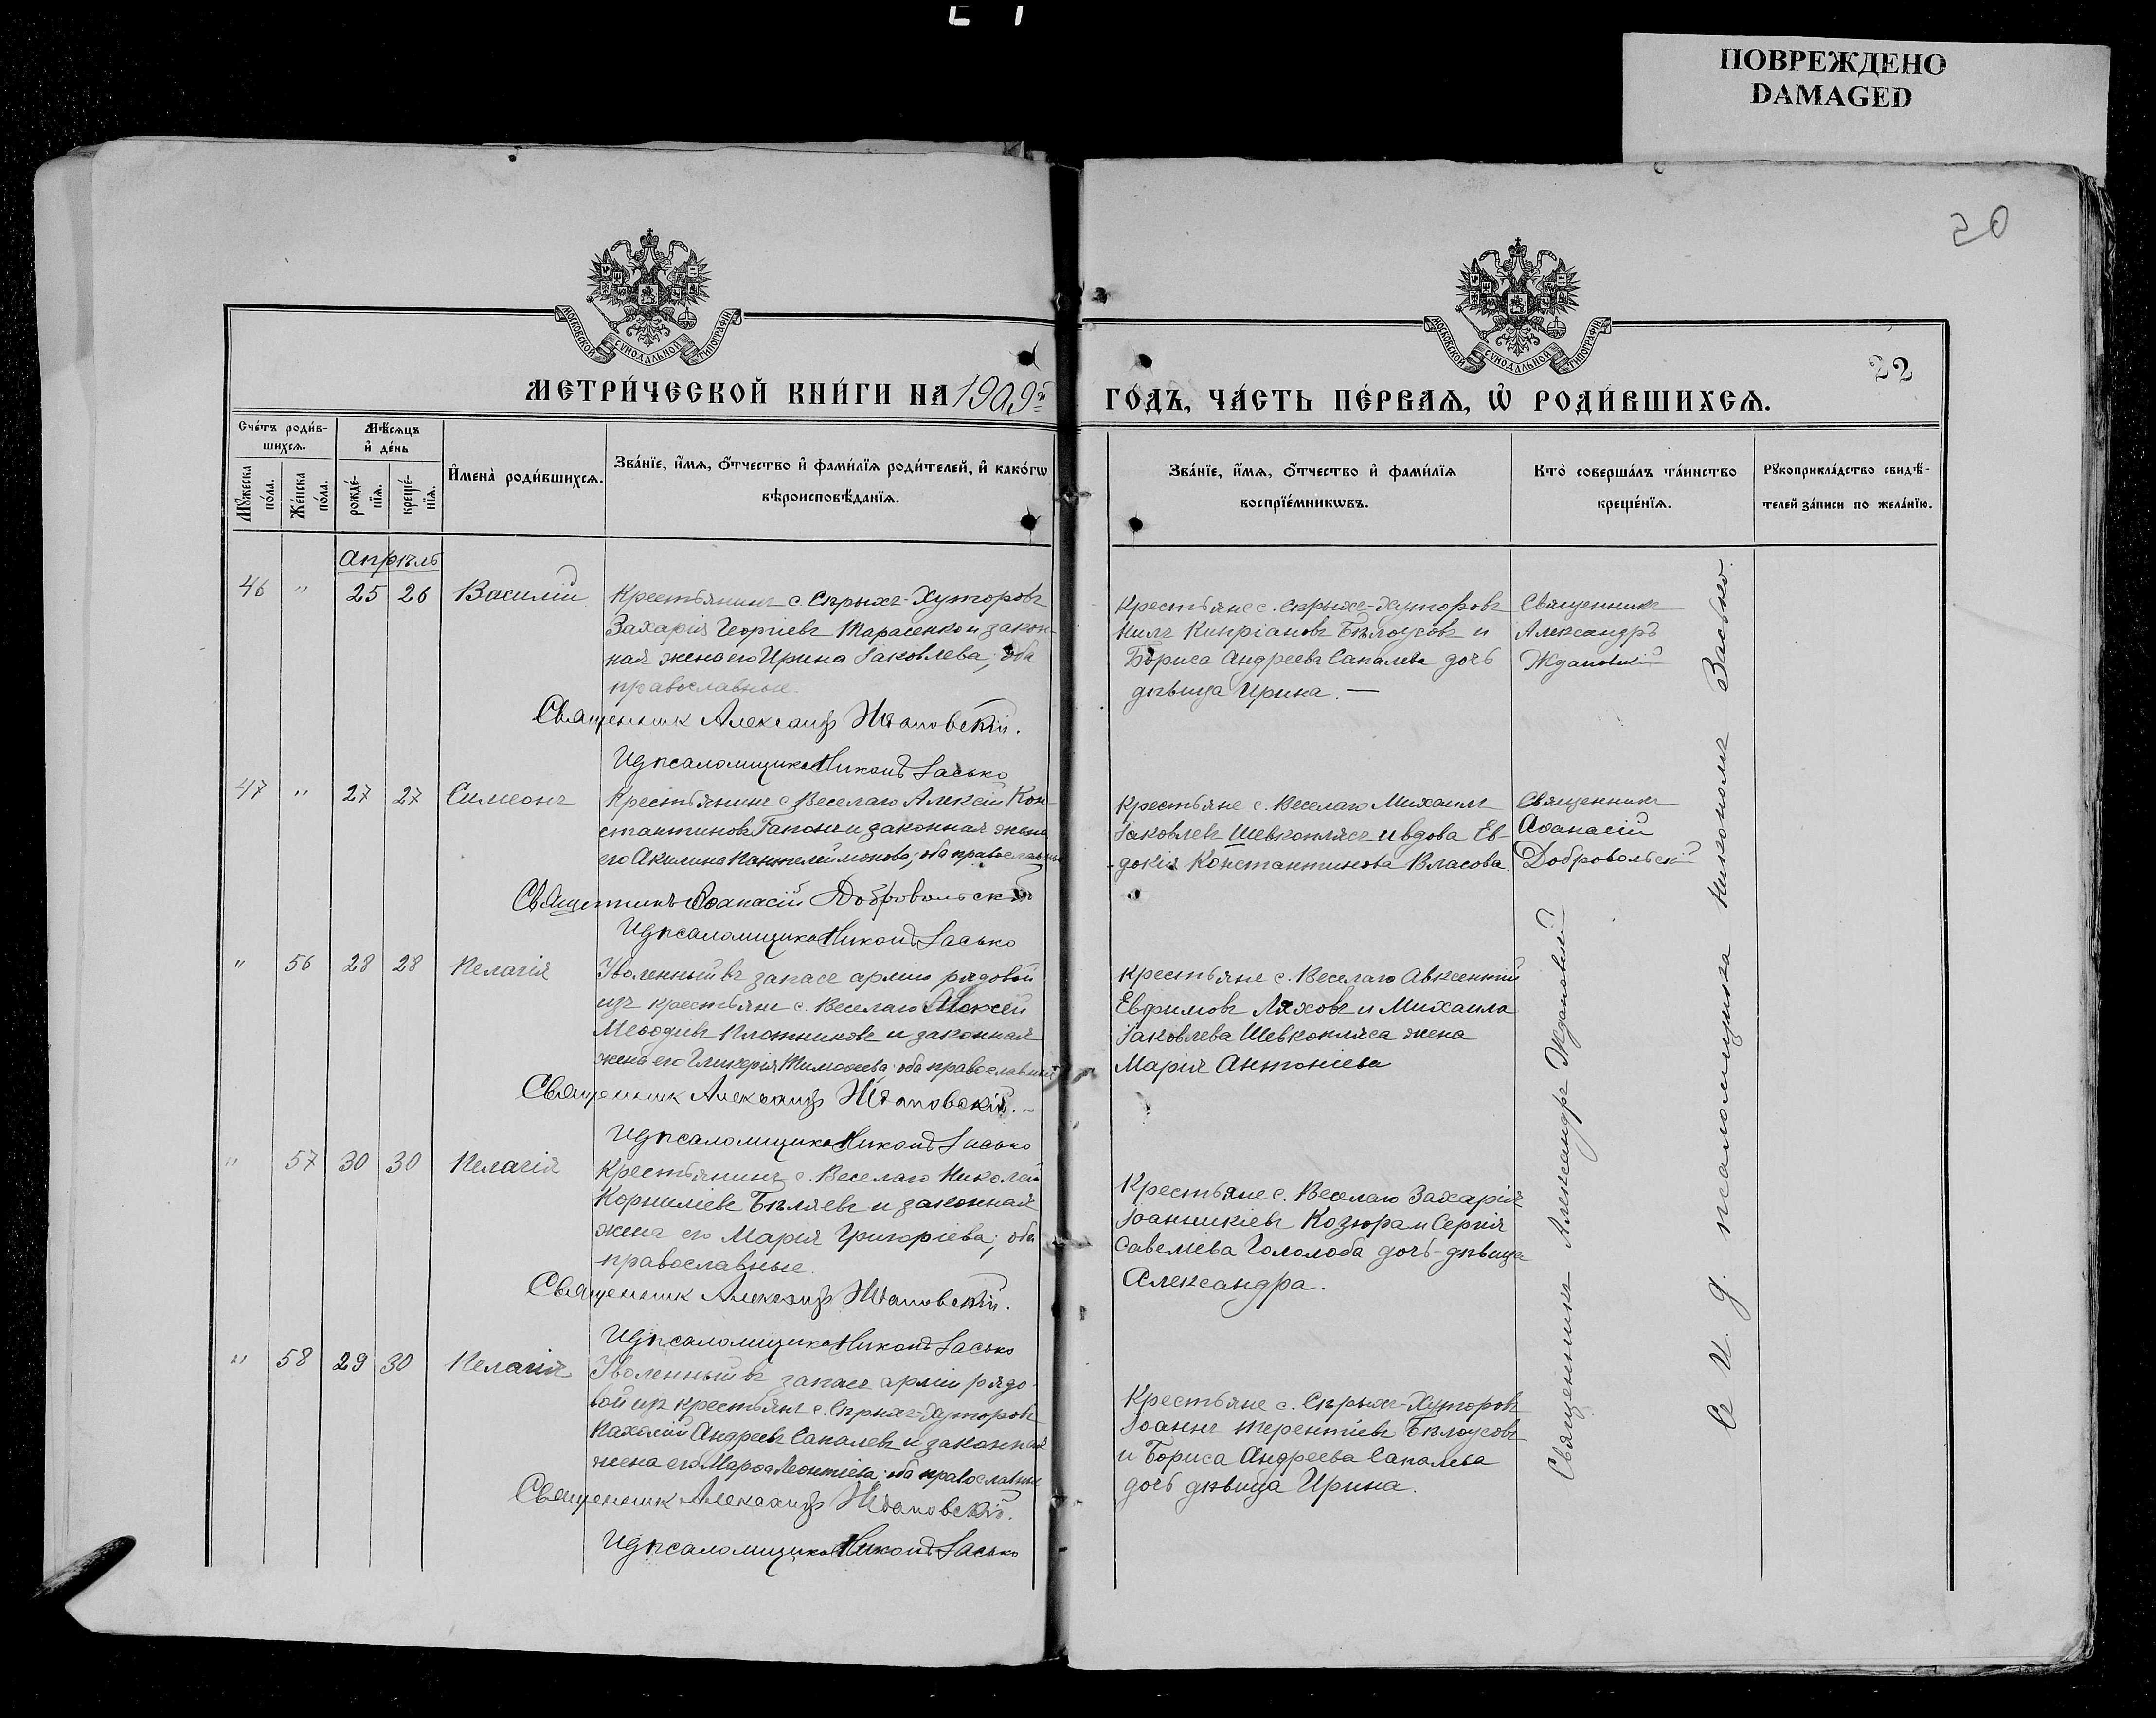 ПОВРЕЖДЕНО
DAMAGED
20
МОСКОВСКОЙ СѴНОДАЛЬНОЙ ТИПОГРАФІИ
МОСКОВСКОЙ СѴНОДАЛЬНОЙ ТИПОГРАФІИ
22
МЕТРИ́ЧЕСКОЙ КНИ́ГИ НА 1909й
ГО́ДЪ, ЧА́СТЬ ПЕ́РВАѦ, Ѡ҆ РОДИ́ВШИХСѦ.
Сче́тъ роди́в-
шихсѧ.
Мꙋ́жеска по́ла.
Же́нска по́ла.
Мѣ́сѧцъ
и҆ де́нь
рожде́-
нїѧ.
креще́-
нїѧ.
И҆мена̀ роди́вшихсѧ.
Зва́нїе, и҆́мѧ, ѻ҆́тчество и҆ фами́лїѧ роди́телей, и҆ како́гѡ
вѣроисповѣ́данїѧ.
Зва́нїе, и҆́мѧ, ѻ҆́тчество и҆ фами́лїѧ
воспрїе́мникѡвъ.
Кто̀ соверша́лъ та́инство
креще́нїѧ.
Рꙋкоприкла́дство свидѣ́-
телей за́писи по жела́нїю.
Апрѣль
46 " 25 26 Василій
Крестьянинъ с. Сѣрыхъ-Хуторовъ
Захарія Георгіевъ Тарасенко и закон-
ная жена его Ирина Іаковлева; оба
православные.
Священник Александр Ждановскій.
И д псаломщика Никон Засько
Крестьяне с. Сѣрыхъ-Хуторовъ
Нилъ Кипріановъ Бѣлоусовъ и
Бориса Андреева Сапалева дочь
дѣвица Ирина. —
Священникъ
Александръ
Ждановскій
47 " 27 27 Симеонъ
Крестьянинъ с. Веселаго Алексій Кон-
стантиновъ Гапонъ и законная жена
его Акилина Пантелеймонова; оба православные
Священникъ Аѳанасій Добровольскій
И д псаломщика Никон Засько
Крестьяне с. Веселаго Михаилъ
Іаковлевъ Шевкоплясъ и вдова Ев-
докія Константинова Власова.
Священникъ
Аѳанасій
Добровольскій
" 56 28 28 Пелагія
Уволенный въ запасъ арміи рядовой
изъ крестьянъ с. Веселаго Алексій
Меѳодіевъ Плотниковъ и законная
жена его Гликерія Тимоѳеева; оба православные
Священник Александр Ждановскій. -
И д псаломщика Никон Засько
Крестьяне с. Веселаго Авксентій
Евфимовъ Ляховъ и Михаила
Іаковлева Шевкопляса жена
Марія Антоніева
" 57 30 30 Пелагія
Крестьянинъ с. Веселаго Николай
Корниліевъ Бѣляевъ и законная
жена его Марія Григоріева; оба
православные.
Священник Александр Ждановскій.
И д псаломщика Никон Засько
Крестьяне с. Веселаго Захарія
Іоанникіевъ Козюра и Сергія
Савеліева Гололоба дочь-дѣвица
Александра.
" 58 29 30 Пелагія
Уволенный въ запасъ арміи рядо-
вой изъ крестьянъ с. Сѣрыхъ-Хуторовъ
Пахомій Андреевъ Сапалевъ и законная
жена его Марѳа Леонтіева; оба православные
Священник Александр Ждановскій.
И д псаломщика Никон Засько
Крестьяне с. Сѣрыхъ-Хуторовъ
Іоаннъ Терентіевъ Бѣлоусовъ
и Бориса Андреева Сапалева
дочь дѣвица Ирина.
Священникъ Александръ Ждановскій
И. д. псаломщика Никонъ Засько.